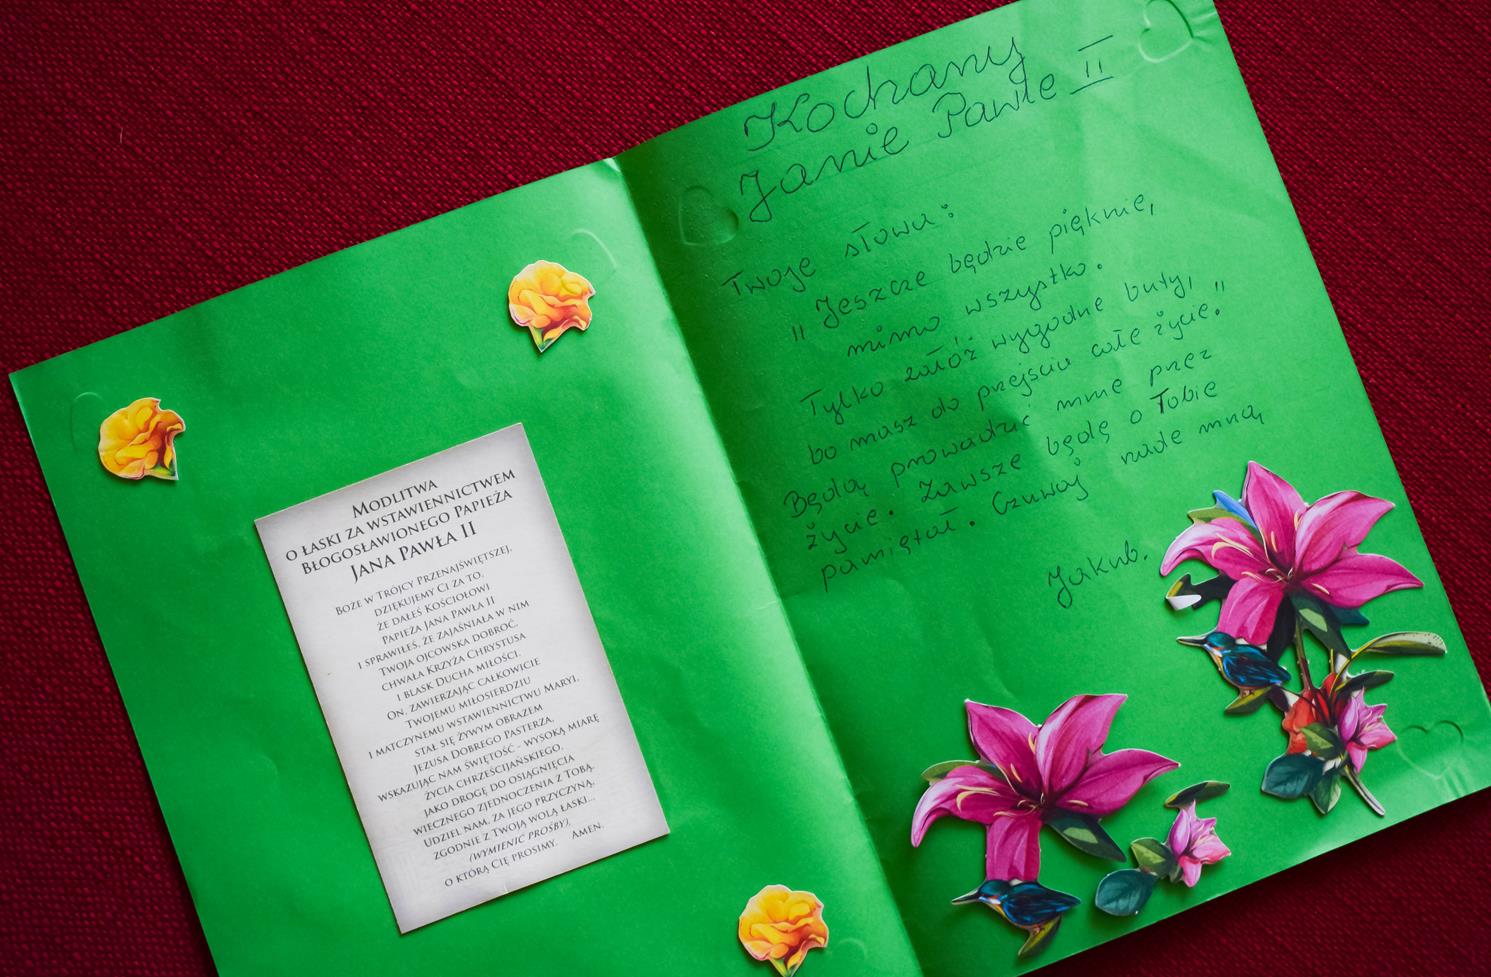 MODLITWA
O ŁASKI ZA WSTAWIENNICTWEM
BŁOGOSŁAWIONEGO PAPIEŻA
JANA PAWŁA II
BOŻE W TRÓJCY PRZENAJŚWIĘTSZEJ,
DZIĘKUJEMY CI ZA TO,
ŻE DAŁEŚ KOŚCIOŁOWI
PAPIEŻA JANA PAWŁA II
I SPRAWIŁEŚ, ŻE ZAJAŚNIAŁA W NIM
TWOJA OJCOWSKA DOBROĆ,
CHWAŁA KRZYŻA CHRYSTUSA
I BLASK DUCHA MIŁOŚCI.
ON, ZAWIERZAJĄC CAŁKOWICIE
TWOJEMU MIŁOSIERDZIU
I MATCZYNEMU WSTAWIENNICTWU MARYI,
STAŁ SIĘ ŻYWYM OBRAZEM
JEZUSA DOBREGO PASTERZA,
WSKAZUJĄC NAM ŚWIĘTOŚĆ - WYSOKĄ MIARĘ
ŻYCIA CHRZEŚCIJAŃSKIEGO,
JAKO DROGĘ DO OSIĄGNIĘCIA
WIECZNEGO ZJEDNOCZENIA Z TOBĄ.
UDZIEL NAM, ZA JEGO PRZYCZYNĄ,
ZGODNIE Z TWOJĄ WOLĄ ŁASKI...
(WYMIENIĆ PROŚBY),
O KTÓRĄ CIĘ PROSIMY. AMEN.
Kochany
Janie Pawle II
Twoje słowa:
"Jeszcze będzie pięknie,
mimo wszystko.
Tylko załóż wygodne buty,
bo masz do przejścia całe życie."
Będą prowadzić mnie przez
życie. Zawsze będę o Tobie
pamiętał. Czuwaj nade mną
Jakub.